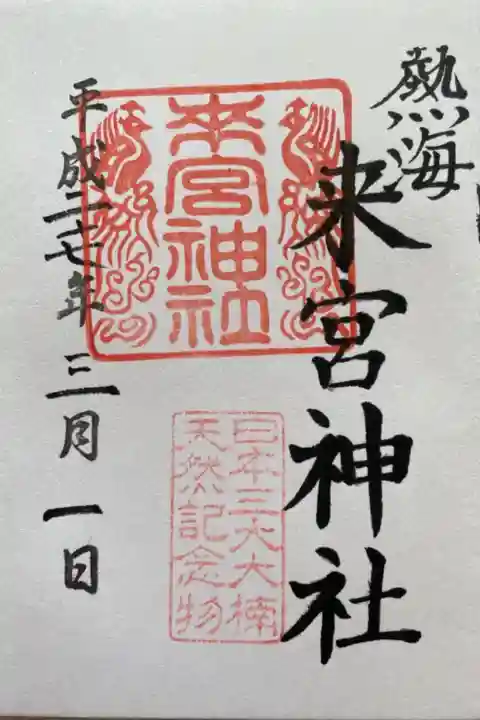 熱海
来宮神社
来宮神社
日本三大大楠
天然記念物
平成二七年三月一日